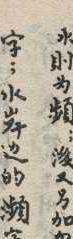 水則为頻；後又另加
字；水岸边的瀕